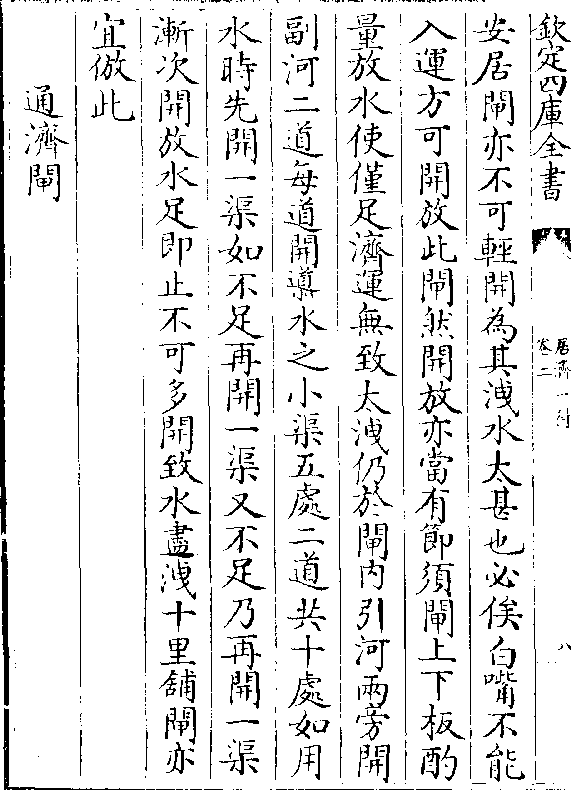 欽定四庫全書
居濟一得
卷二
八
安居閘亦不可輕開為其洩水太甚也必俟白嘴不能
入運方可開放此閘然開放亦當有節須閘上下板酌
量放水使僅足濟運無致太洩仍於閘内引河兩旁開
副河二道每道開導水之小渠五處二道共十處如用
水時先開一渠如不足再開一渠又不足乃再開一渠
漸次開放水足即止不可多開致水盡洩十里舖閘亦
宜倣此
通濟閘